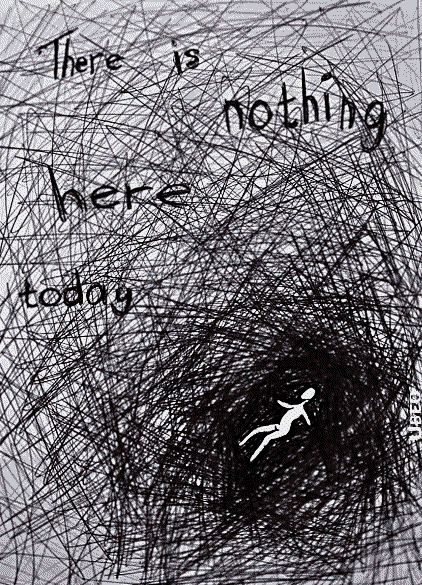 There is
nothing
here
today